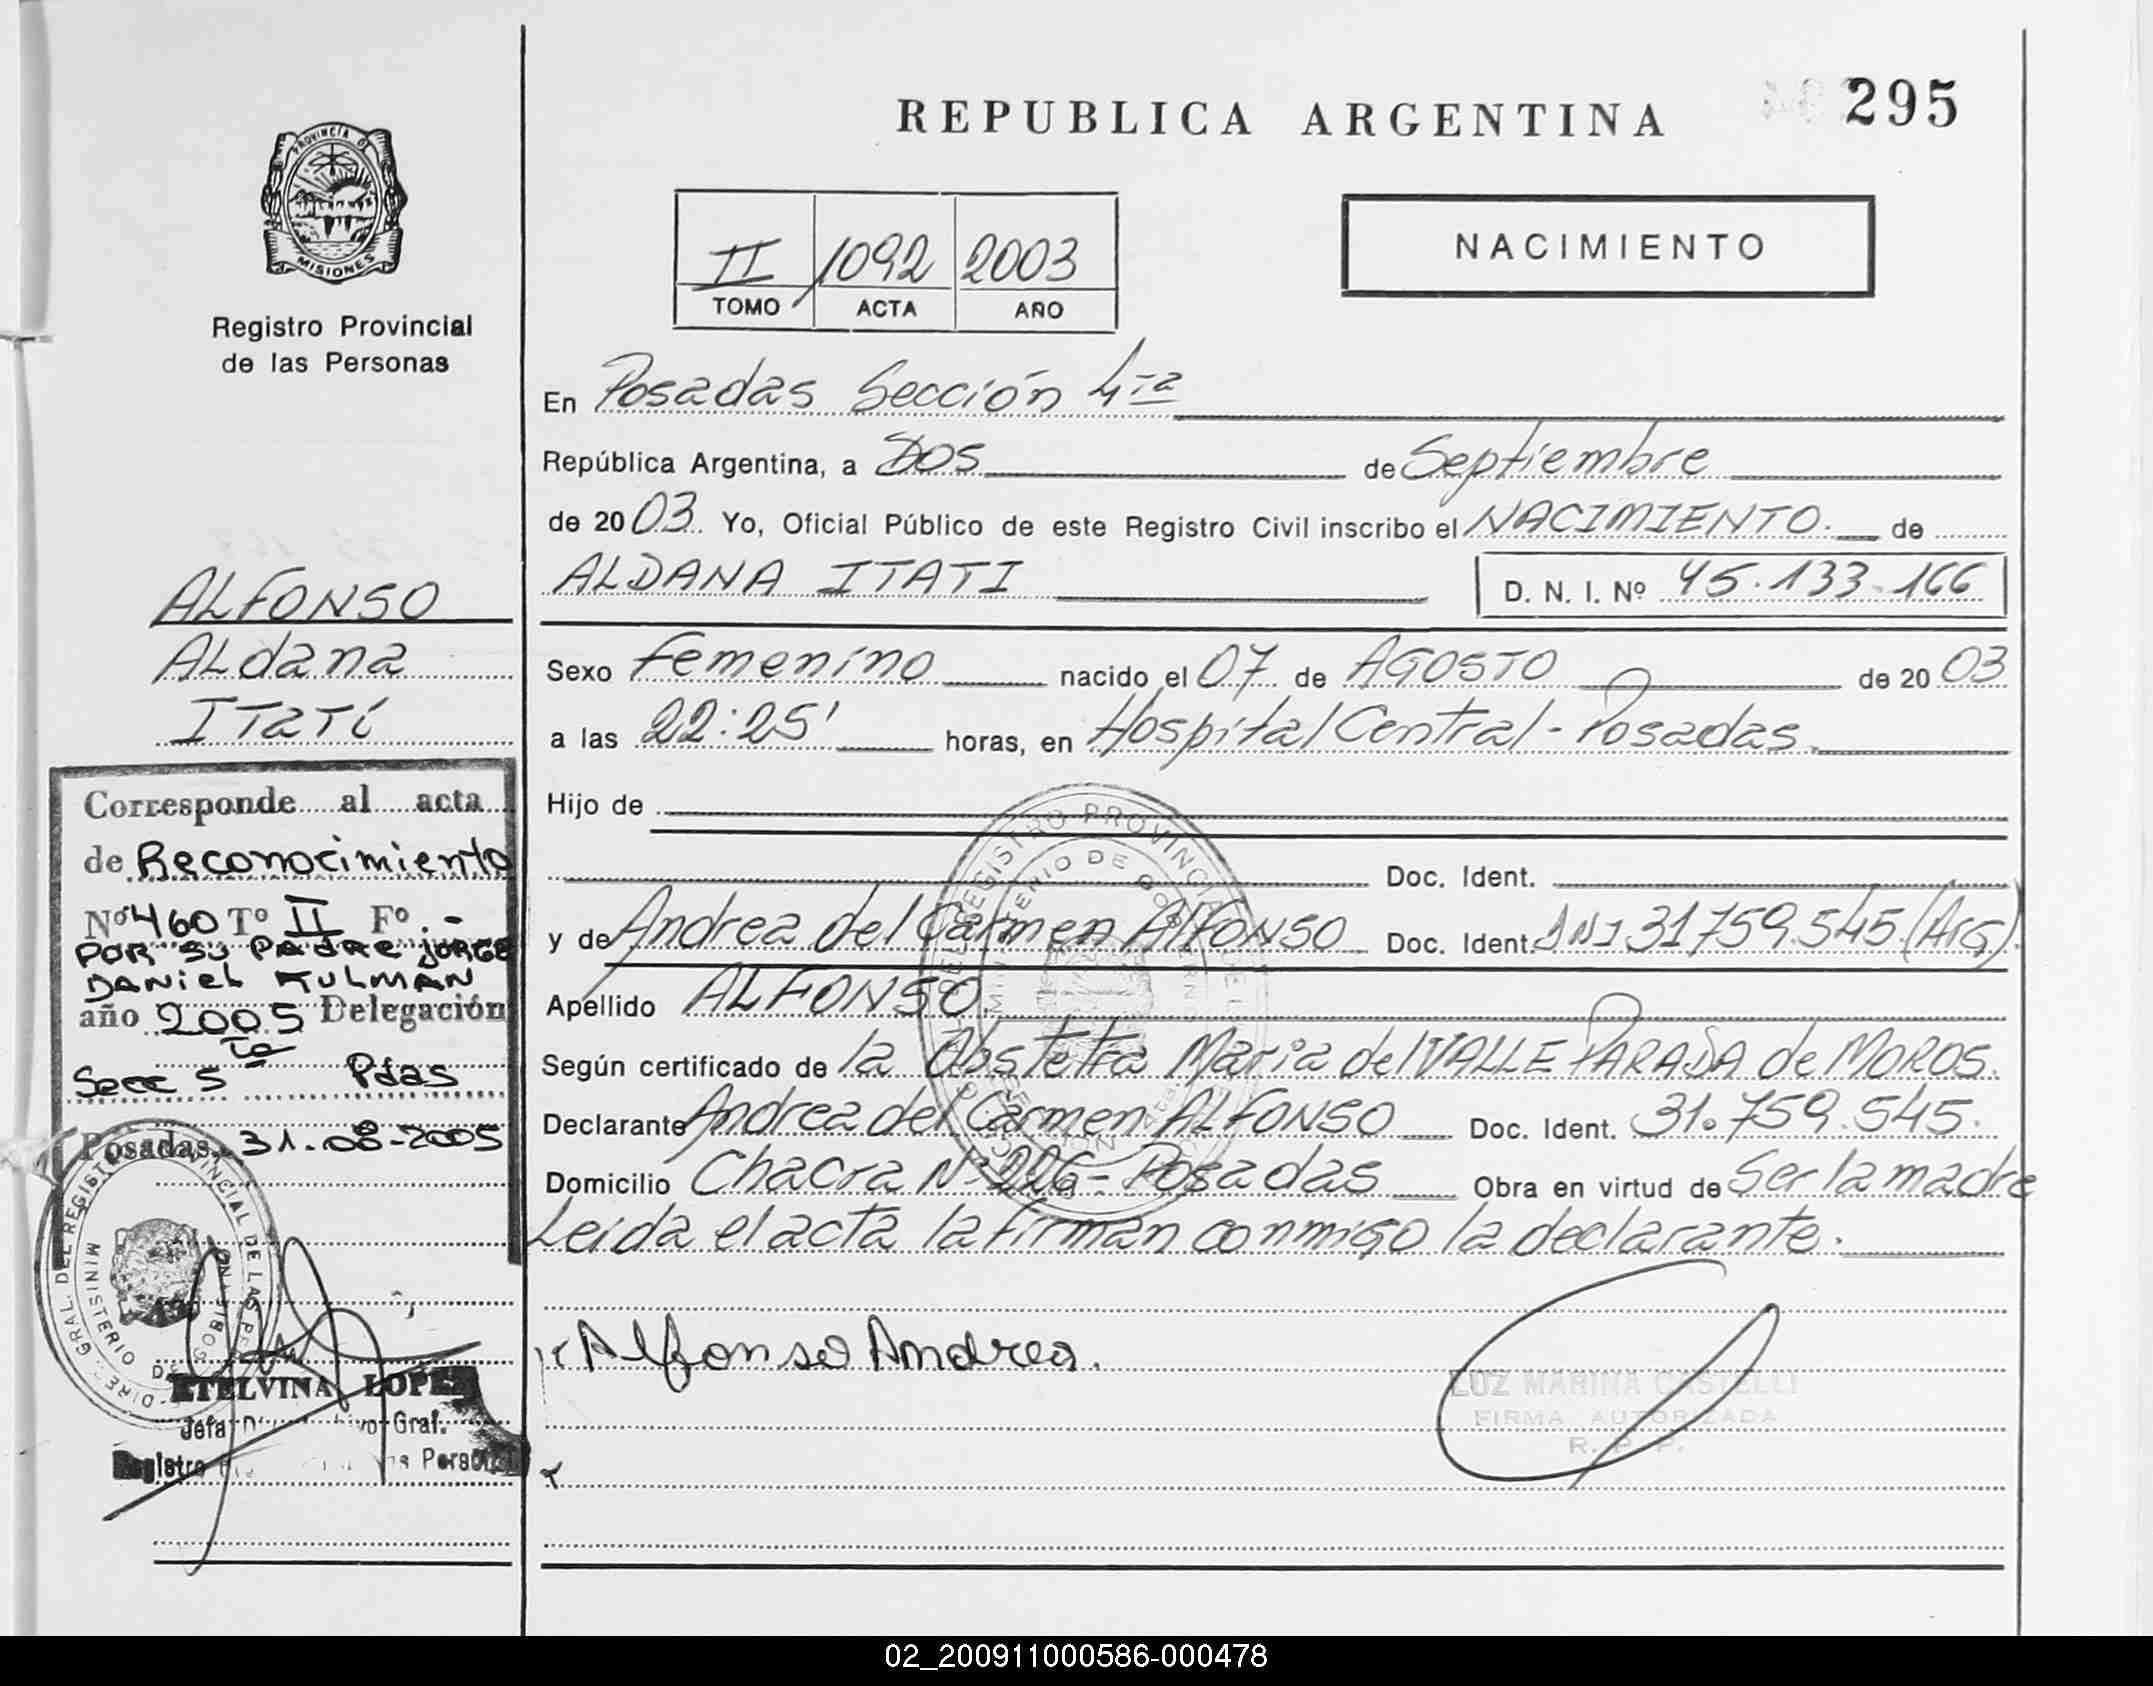 REPUBLICA ARGENTINA
295
PROVINCIA DE
MISIONES
Registro Provincial
de las Personas
II 1092 2003
TOMO ACTA AÑO
NACIMIENTO
En Posadas Sección 4ta
República Argentina, a Dos de Septiembre
de 2003 Yo, Oficial Público de este Registro Civil inscribo el NACIMIENTO. de
ALDANA ITATI D. N. I. Nº 45.133.166
Sexo Femenino nacido el 07 de AGOSTO de 2003
a las 22:25' horas, en Hospital Central - Posadas
Hijo de
Doc. Ident.
y de Andrea del Carmen Alfonso Doc. Ident. DNI 31759.545 (Arg).
Apellido ALFONSO
Según certificado de la Obstetra Maria del VALLE PARADA de MOROS.
Declarante Andrea del Carmen ALFONSO Doc. Ident. 31.759.545.
Domicilio Chacra Nº 226 - Posadas Obra en virtud de Ser la madre
Leida el acta la firman conmigo la declarante.
Alfonso Andrea.
LUZ MARINA CASTELLI
FIRMA AUTORIZADA
R. P. P.
ALFONSO
ALdana
ITatí
Corresponde al acta
de Reconocimiento
Nº 460 Tº II Fº -
POR SU PADRE JORGE
DANIEL KULMAN
año 2005 Delegación
Secc 5ta Pdas
Posadas, 31-08-2005
ETELVINA LOPEZ
Jefa Graf.
Registro
02_200911000586-000478